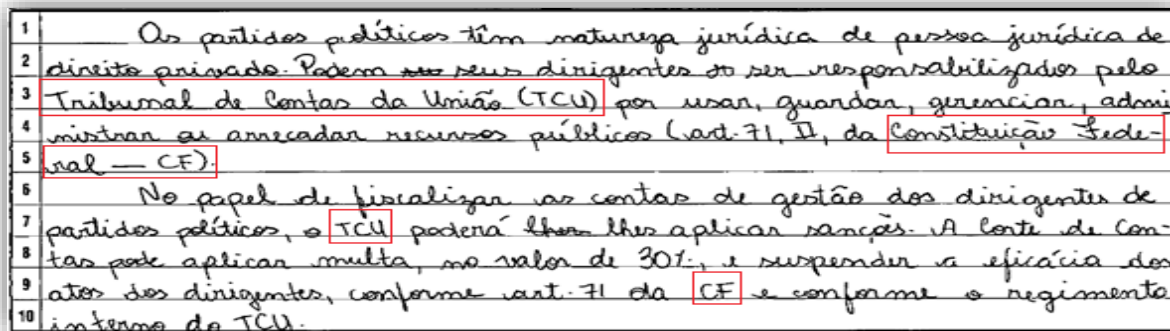 1 Os partidos políticos têm natureza jurídica de pessoa jurídica de
2 direito privado. Podem seus dirigentes ser responsabilizados pelo
3 Tribunal de Contas da União (TCU) por usar, guardar, gerenciar, admi
4 nistrar ou arrecadar recursos públicos (art. 71, II, da Constituição Fede-
5 ral — CF).
6 No papel de fiscalizar as contas de gestão dos dirigentes de
7 partidos políticos, o TCU poderá lhes aplicar sanções. A Corte de Con-
8 tas pode aplicar multa, no valor de 30%, e suspender a eficácia dos
9 atos dos dirigentes, conforme art. 71 da CF e conforme o regimento
10 interno do TCU.